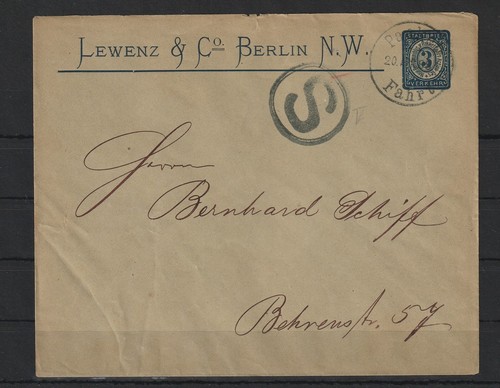 LEWENZ & Co. BERLIN N.W.
STADTBRIEF
3
VERKEHR
20.
Fahrt
S
Herrn
Bernhard Schiff
Behrenstr. 57